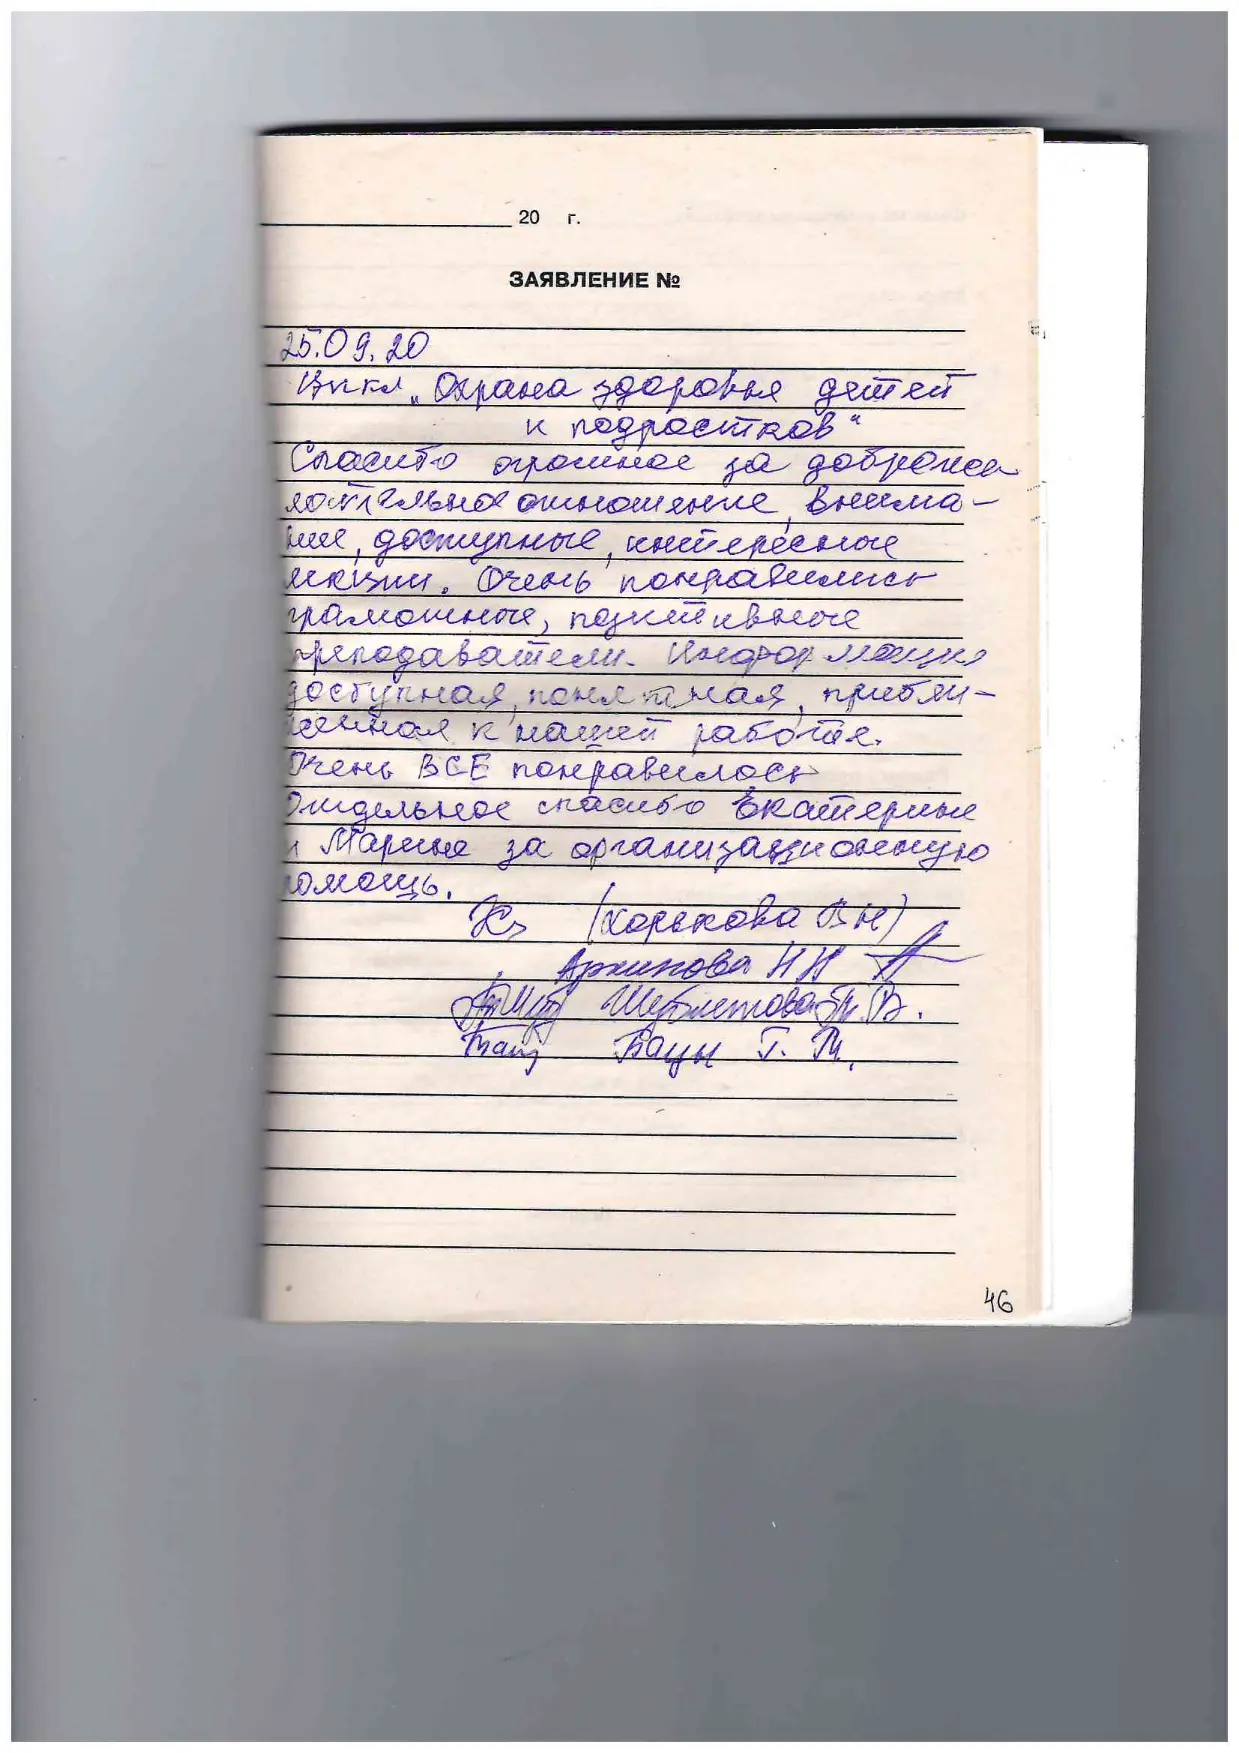 20 г.
ЗАЯВЛЕНИЕ №
25.09.20
Цикл „Охрана здоровья детей
и подростков"
Спасибо огромное за доброже
лательное отношение, внима-
ние, доступные, интересные
лекции. Очень понравились
грамотные, позитивные
преподаватели. Информация
доступная, понятная, прибли-
женная к нашей работе.
Очень ВСЕ понравилось
Отдельное спасибо Екатерине
и Марине за организационную
помощь.
(Хорькова В Н)
Архипова Н Н
Т. В.
Бацн Г. М.
46